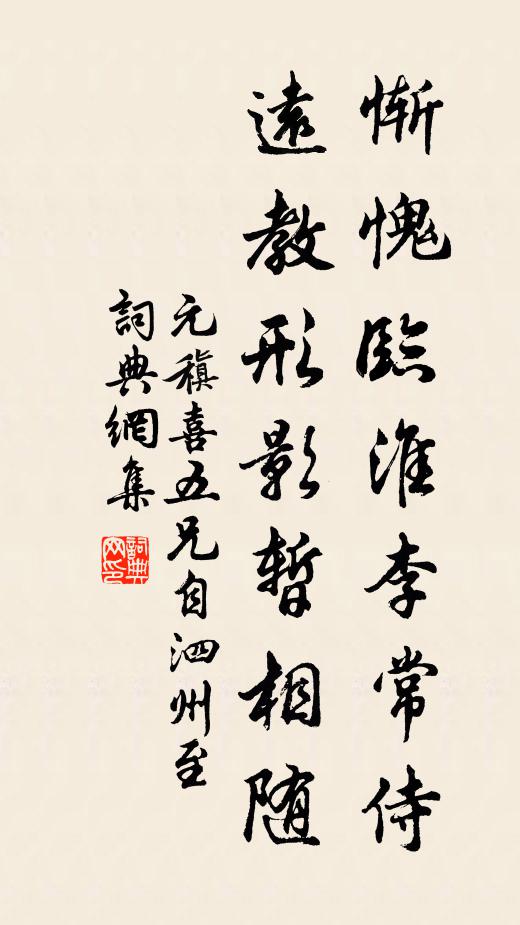 慚愧臨淮李常侍
遠教形影暫相随
元稹喜五兄自泗州至
詞典網集
詞典网印